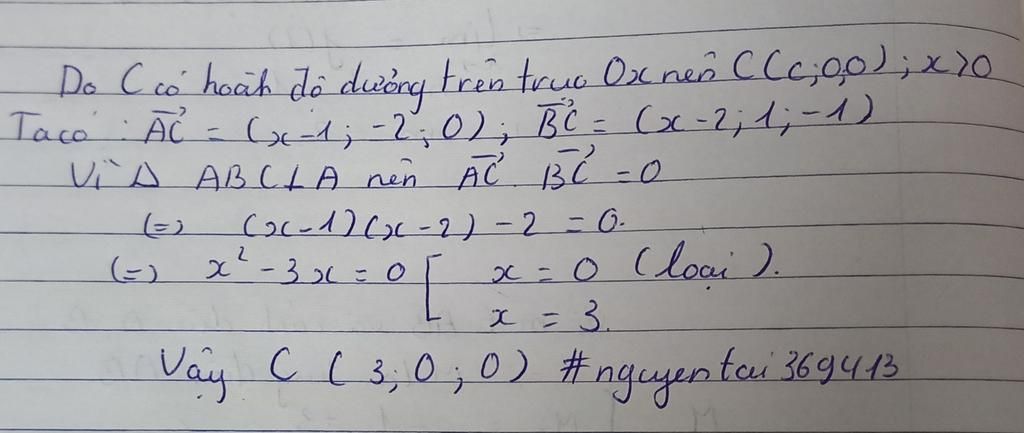 Do C có hoành độ dương trên trục Ox nên C(c;0,0); x>0
Ta có: $\overrightarrow{AC}$ = (x-1; -2; 0); $\overrightarrow{BC}$ = (x-2; 1; -1)
Vì Δ ABC ⊥ A nên $\overrightarrow{AC}$. $\overrightarrow{BC}$ = 0
(=) (x-1)(x-2) - 2 = 0.
(=) x² - 3x = 0 [ x = 0 (loại).
x = 3.
Vậy C (3; 0; 0) #nguyentai369413